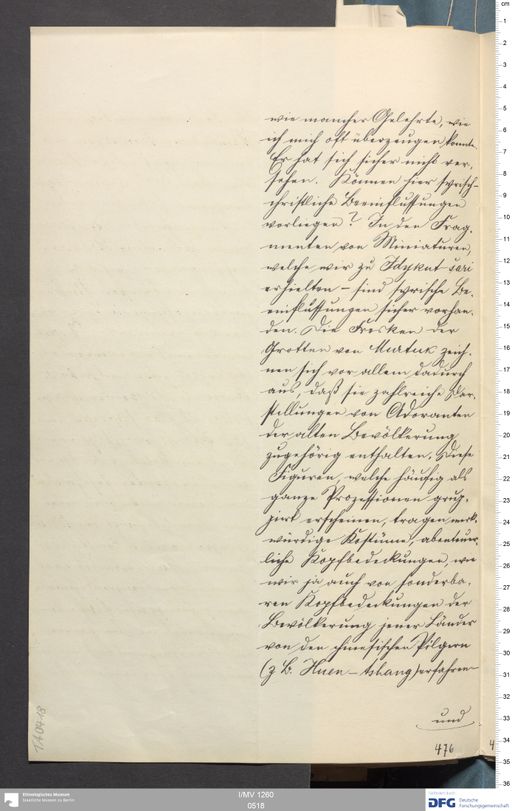 wie mancher Gelehrte, wie
ich mich oft überzeugen konnte.
Er hat sich sicher nicht ver-
sehen. Können hier syrisch-
christliche Beeinflussungen
vorliegen? In den Frag-
menten von Miniaturen,
welche wir zu Idykut-šari
erhielten – sind syrische Be-
einflussungen sicher vorhan-
den. Die Fresken der
Grotten von Murtuk zeich-
nen sich vor allem dadurch
aus, daß sie zahlreiche Dar-
stellungen von Adoranten
der alten Bevölkerung
zugehörig enthalten. Diese
Figuren, welche häufig als
ganze Prozessionen grup-
pirt erscheinen, tragen merk-
würdige Kostüme, abenteuer-
liche Kopfbedeckungen, wie
wir ja auch von sonderba-
ren Kopfbedeckungen der
Bevölkerung jener Länder
von den chinesischen Pilgern
(z B. Hüen-tshang) erfahren
und
476
Ethnologisches Museum
Staatliche Museen zu Berlin
I/MV 1260
0518
DFG
Deutsche
Forschungsgemeinschaft